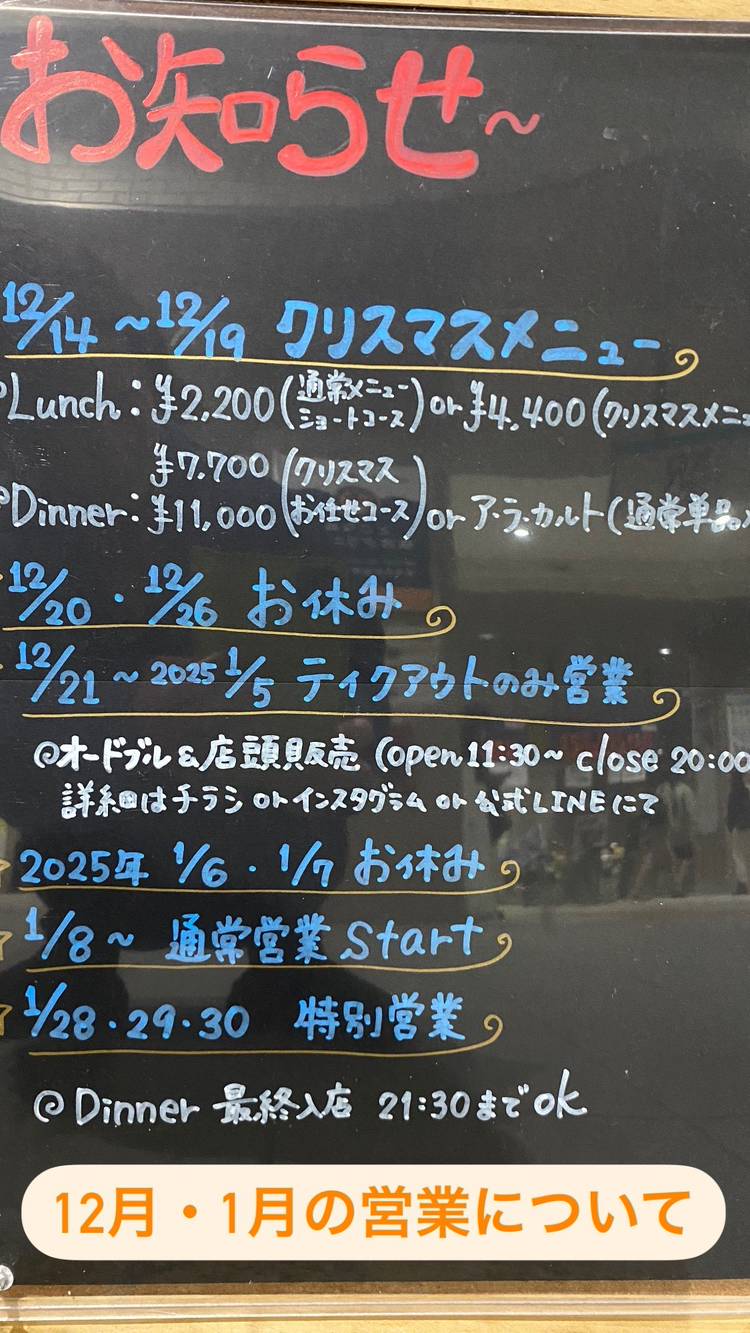 お知らせ~
12/14 ~ 12/19 クリスマスメニュー
@Lunch: ¥2,200 (通常メニュー ショートコース) or ¥4,400 (クリスマスメニュ
@Dinner: ¥7,700 ¥11,000 (クリスマス お任せコース) or ア・ラ・カルト (通常単品)
12/20 · 12/26 お休み
12/21 ~ 2025 1/5 テイクアウトのみ営業
@オードブル & 店頭販売 (open 11:30~ close 20:00
詳細はチラシ or インスタグラム or 公式LINEにて
2025年 1/6 · 1/7 お休み
1/8 ~ 通常営業 Start
1/28 · 29 · 30 特別営業
@ Dinner 最終入店 21:30まで ok
12月・1月の営業について